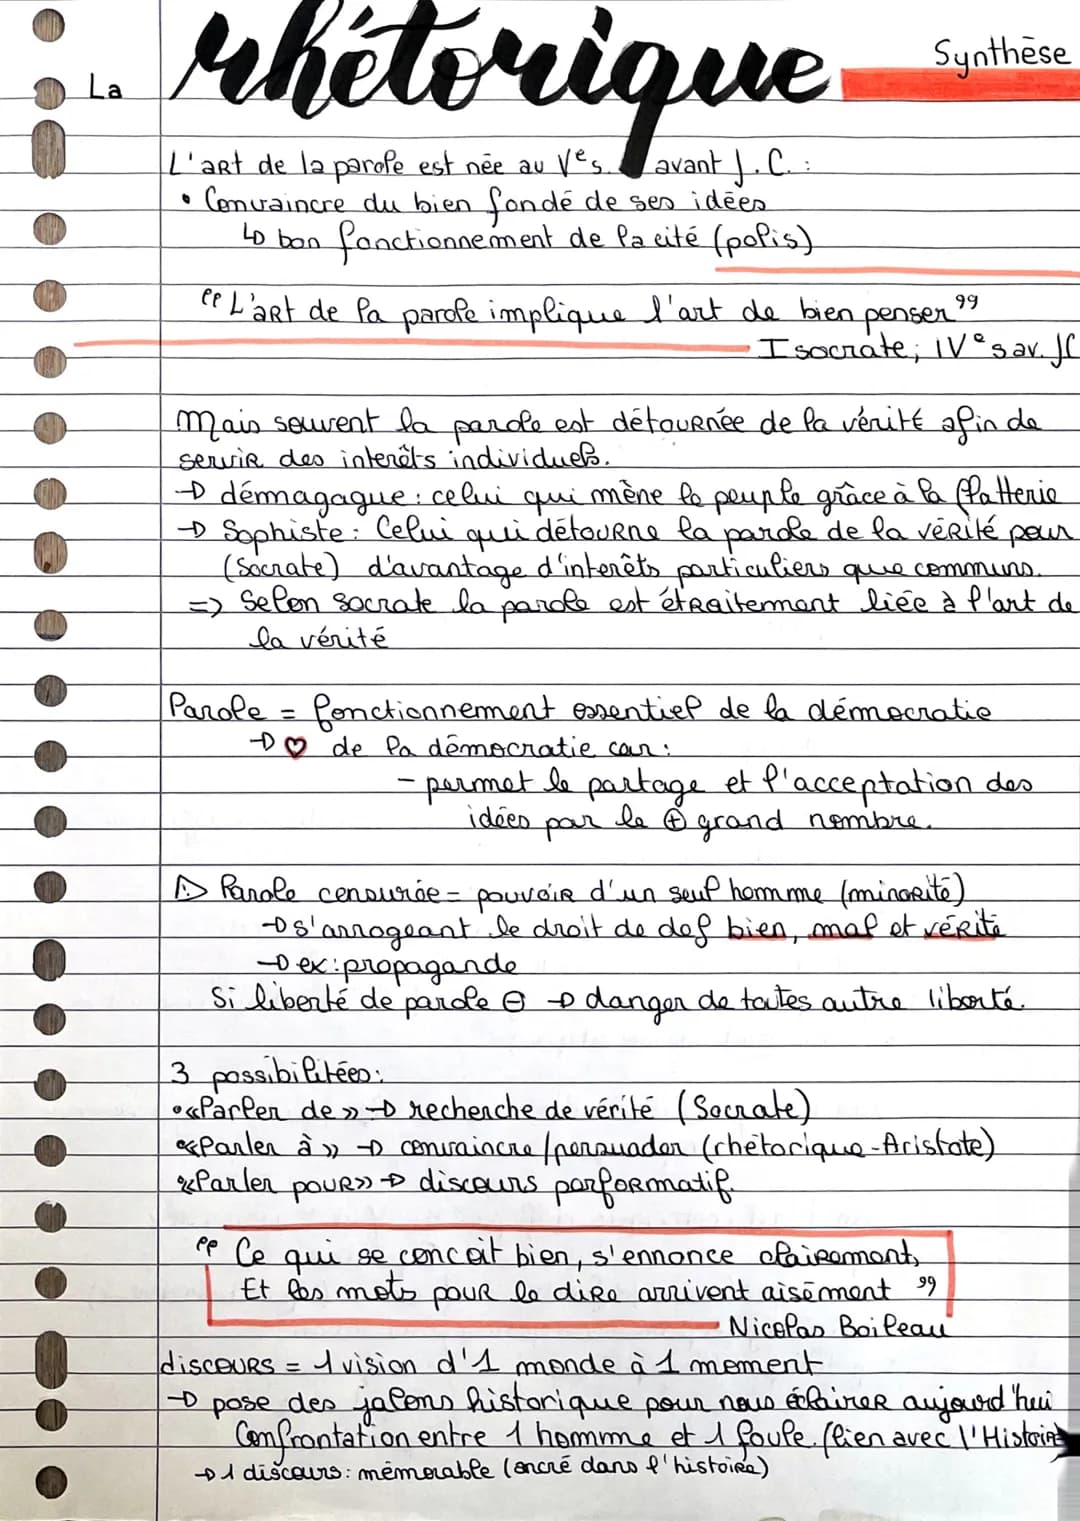 La rhétorique Synthèse
L'art de la parole est née au Ve s. avant J.C. :
• Convaincre du bien fondé de ses idées
↳ bon fonctionnement de la cité (polis)
"L'art de la parole implique l'art de bien penser"
Isocrate, IVe s av. JC
Mais souvent la parole est détournée de la vérité afin de
servir des interêts individuels.
→ démagague : celui qui mène le peuple grâce à la flatterie
→ Sophiste : Celui qui détourne la parole de la vérité pour
(Socrate) d'avantage d'interêts particuliers que communs.
=> Selon Socrate la parole est étraitement liée à l'art de
la vérité
Parole = fonctionnement essentiel de la démocratie
→ ♡ de la démocratie car :
- permet le partage et l'acceptation des
idées par le ⊕ grand nombre.
⚠ Parole censurée = pouvoir d'un seul homme (minorité)
→ s'arrogeant le droit de def bien, mal et vérité
→ ex : propagande
Si liberté de parole ⊖ → danger de toutes autre liberté.
3 possibilitées :
• «Parler de» → recherche de vérité (Socrate)
• «Parler à» → convaincre/persuader (rhétorique - Aristote)
• «Parler pour» → discours performatif.
"Ce qui se concoit bien, s'ennonce clairement,
Et les mots pour le dire arrivent aisément"
Nicolas Boileau
discours = 1 vision d'1 monde à 1 moment
→ pose des jalons historique pour nous éclairer aujourd'hui
Confrontation entre 1 homme et 1 foule. (lien avec l'Histoire
→ 1 discours : mémorable (encré dans l'histoire)